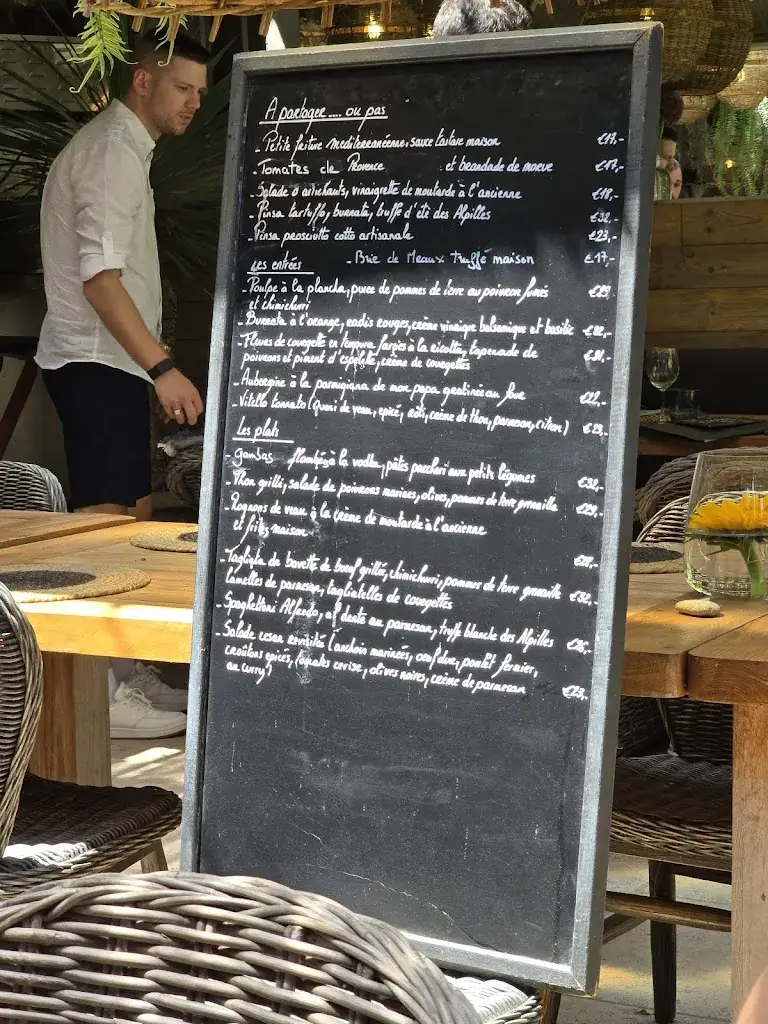 A partager .... ou pas
- Petite friture mediterranéenne, sauce tartare maison €17,-
- Tomates de Provence et brandade de morue €17,-
- Salade d'artichauts, vinaigrette de moutarde à l'ancienne €18,-
- Pinsa tartufo, burrata, truffe d'été des Alpilles €32,-
- Pinsa prosciutto cotto artisanale €23,-
- Brie de Meaux truffé maison €17-
Les entrées
- Poulpe à la plancha, puree de pommes de terre au poivron fumés
et chimichurri
- Burrata à l'orange, radis rouges, crème vinaigre balsamique et basilic
- Fleurs de courgette en tempura farçies à la ricotta, tapenade de
poivrons et piment d'espelette, crème de courgettes
- Aubergine à la parmigiana de mon papa gratinée au four €22,-
- Vitello tonnato (Quasi de veau, epicé, rôti, crème de thon, parmesan, citron) €23,-
Les plats
- Gambas flambées à la vodka, pâtes paccheri aux petits légumes €32,-
- Thon grillé, salade de poivrons marinés, olives, pommes de terre grenaille €29,-
- Rognons de veau à la crème de moutarde à l'ancienne
et frites maison
- Tagliata de bavette de bœuf grillée, chimichurri, pommes de terre grenaille €32,-
lamelles de parmesan, tagliatelles de courgettes
- Spaghettoni Alfredo, al dente au parmesan, truffe blanche des Alpilles €26,-
- Salade cesar revisitée (anchois marinées, oeuf dur, poulet fermier,
croûtons epicés, tomates cerise, olives noires, crème de parmesan €23,-
au curry)